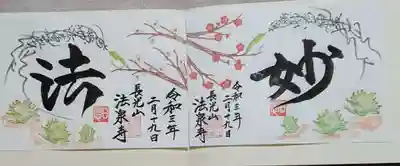 妙
令和三年
二月十九日
長光山
法泉寺
法
令和三年
二月十九日
長光山
法泉寺